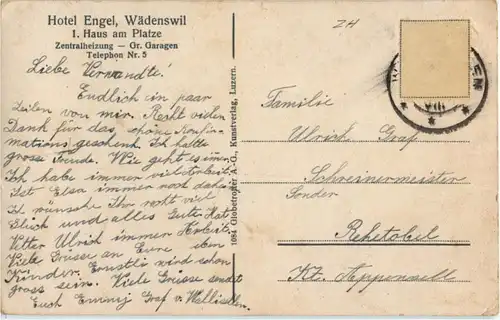 Hotel Engel, Wädenswil
1. Haus am Platze
Zentralheizung — Gr. Garagen
Telephon Nr. 5
Liebe Verwandte!
Endlich ein paar
Zeilen von mir. Recht vielen
Dank für das schöne Konfir-
mations geschenk. Ich hatte
grosse Freude. Wie geht es immer
Ich habe immer viel Arbeit
Ist Elsa immer noch daheim
Ich wünsche Ihr recht viel
Glück und alles Gute. Hat
Vetter Ulrich immer Arbeit.
Viele Grüsse an Eure lieben
Kinder. Ernstli wird schon
gross sein. Viele Grüsse sendet
Euch Emmy Graf v. Wallisellen.
1084 Globetrotter A.-G., Kunstverlag, Luzern.
ZH
Familie
Ulrich Graf
Schreinermeister
Sonder
Rehetobel
Kt. Appenzell
VIII